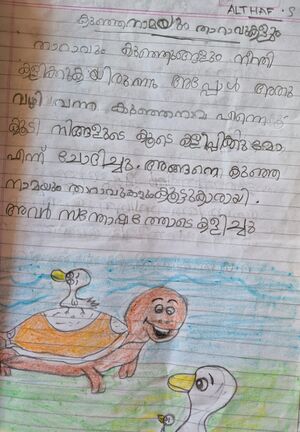 ALTHAF . S
കുഞ്ഞനാമയും താറാവുകളും
താറാവും കുഞ്ഞുങ്ങളും നീന്തി
കളിക്കുകയിരുന്നു അപ്പോൾ അതു
വഴി വന്ന കുഞ്ഞനാമ എന്നെക്
കൂടി നിങ്ങളുടെ കൂടെ കളിപ്പിക്കുമോ
എന്ന് ചോദിച്ചു. അങ്ങനെ കുഞ്ഞ
നാമയും താറാവുകളും കൂട്ടുകാരായി.
അവർ സന്തോഷത്തോടെ കളിച്ചു